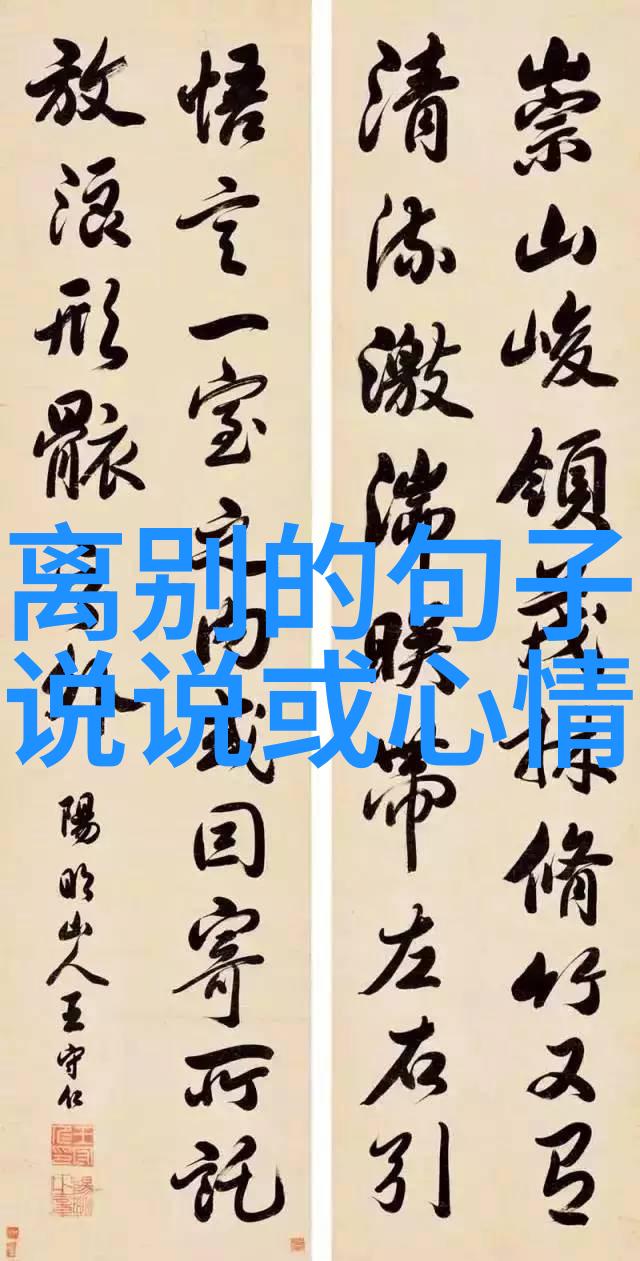 崇山峻領茂林脩竹又有
清流激湍暎帶左右引
悟言一室之内或因寄所託
放浪形骸之外
陽明山人王守仁
离别的句子
说说或心情